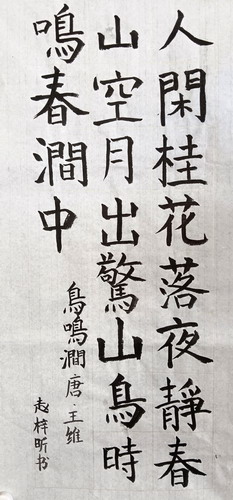 人閑桂花落夜靜春
山空月出驚山鳥時
鳴春澗中
鳥鳴澗唐·王维
志梓昕书